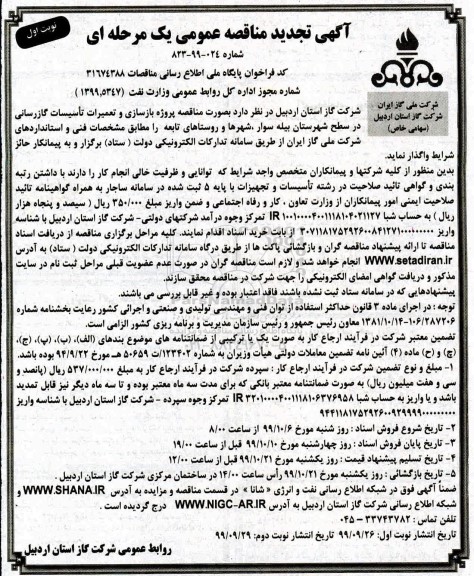 نوبت اول
آگهی تجدید مناقصه عمومی یک مرحله ای
شماره ۰۲۴-۹۹-۸۲۳
کد فراخوان پایگاه ملی اطلاع رسانی مناقصات ۳۱۶۷۴۳۸۸
شماره مجوز اداره کل روابط عمومی وزارت نفت (۱۳۹۹,۵۳۴۷)
شرکت ملی گاز ایران
شرکت گاز استان اردبیل
(سهامی خاص)
شرکت گاز استان اردبیل در نظر دارد بصورت مناقصه پروژه بازسازی و تعمیرات تأسیسات گازرسانی
در سطح شهرستان بیله سوار ،شهرها و روستاهای تابعه را مطابق مشخصات فنی و استانداردهای
شرکت ملی گاز ایران از طریق سامانه تدارکات الکترونیکی دولت ( ستاد) برگزار و به پیمانکار حائز
شرایط واگذار نماید.
بدین منظور از کلیه شرکتها و پیمانکاران متخصص واجد شرایط که توانایی و ظرفیت خالی انجام کار را دارند با داشتن رتبه
بندی و گواهی تائید صلاحیت در رشته تأسیسات و تجهیزات با پایه ۵ ثبت شده در سامانه ساجار به همراه گواهینامه تائید
صلاحیت ایمنی امور پیمانکاران از وزارت تعاون ، کار و رفاه اجتماعی و ضمن واریز مبلغ ۳۵۰/۰۰۰ ریال ( سیصد و پنجاه هزار
ریال ) به حساب شبا IR ۱۰۰۱۰۰۰۰۴۰۰۱۱۱۸۱۰۴۰۲۱۱۲۷ تمرکز وجوه درآمد شرکتهای دولتی- شرکت گاز استان اردبیل با شناسه
واریز از بابت خرید اسناد اقدام نمایند. کلیه مراحل برگزاری مناقصه از دریافت اسناد
مناقصه تا ارائه پیشنهاد مناقصه گران و بازگشائی پاکت ها از طریق درگاه سامانه تدارکات الکترونیکی دولت ( ستاد) به آدرس
WWW.setadiran.ir انجام خواهد شد و لازم است مناقصه گران در صورت عدم عضویت قبلی مراحل ثبت نام در سایت
مذکور و دریافت گواهی امضای الکترونیکی را جهت شرکت در مناقصه محقق سازند.
پیشنهادهایی که در سامانه ستاد ثبت نشده باشند فاقد اعتبار بوده و غیر قابل بررسی می باشند.
توجه : در اجرای ماده ۳ قانون حداکثر استفاده از توان فنی و مهندسی تولیدی و صنعتی و اجرائی کشور رعایت بخشنامه شماره
۱۰۶/۲۸۷۲۰۶-۱۳۸۱/۱۰/۱۴ معاون رئیس جمهور و رئیس سازمان مدیریت و برنامه ریزی کشور الزامی است.
تضمین معتبر شرکت در فرآیند ارجاع کار به صورت یک یا ترکیبی از ضمانتنامه های موضوع بندهای (الف)، (ب)، (پ)، (ج)،
(چ) و (ح) ماده (۴) آئین نامه تضمین معاملات دولتی هیأت وزیران به شماره ۱۲۳۴۰۲/ت ۵۰۶۵۹ هـ مورخ ۹۴/۹/۲۲ بوده باشد.
۱- مبلغ و نوع تضمین شرکت در فرآیند ارجاع کار : سپرده شرکت در فرآیند ارجاع کار به مبلغ ۵۳۷/۰۰۰/۰۰۰ ریال (پانصد و
سی و هفت میلیون ریال) به صورت ضمانتنامه معتبر بانکی که برای مدت سه ماه معتبر بوده و تا سه ماه دیگر نیز قابل تمدید
باشد و یا واریز به حساب شبا IR ۳۲۰۱۰۰۰۰۴۰۰۱۱۱۸۱۰۶۳۷۶۹۵۸ تمرکز وجوه سپرده - شرکت گاز استان اردبیل با شناسه واریز
۲- تاریخ شروع فروش اسناد : روز شنبه مورخ ۹۹/۱۰/۶ از ساعت ۸/۰۰
۳- تاریخ پایان فروش اسناد : روز چهارشنبه مورخ ۹۹/۱۰/۱۰ قبل از ساعت ۱۹/۰۰
۴- تاریخ تسلیم پیشنهاد قیمت : روز یکشنبه مورخ ۹۹/۱۰/۲۱ قبل از ساعت ۱۲/۰۰
۵- تاریخ بازگشائی : روز یکشنبه مورخ ۹۹/۱۰/۲۱ رأس ساعت ۱۴/۰۰ در ساختمان مرکزی شرکت گاز استان اردبیل .
ضمناً آگهی فوق در شبکه اطلاع رسانی نفت و انرژی « شانا » در قسمت مناقصه و مزایده به آدرس WWW.SHANA.IR و
شبکه اطلاع رسانی شرکت گاز استان اردبیل به آدرس WWW.NIGC-AR.IR درج گردیده است .
تلفن تماس : ۳۳۷۴۳۷۸۲ - ۰۴۵
تاریخ انتشار نوبت اول: ۹۹/۰۹/۲۶ تاریخ انتشار نوبت دوم: ۹۹/۰۹/۲۹
روابط عمومی شرکت گاز استان اردبیل